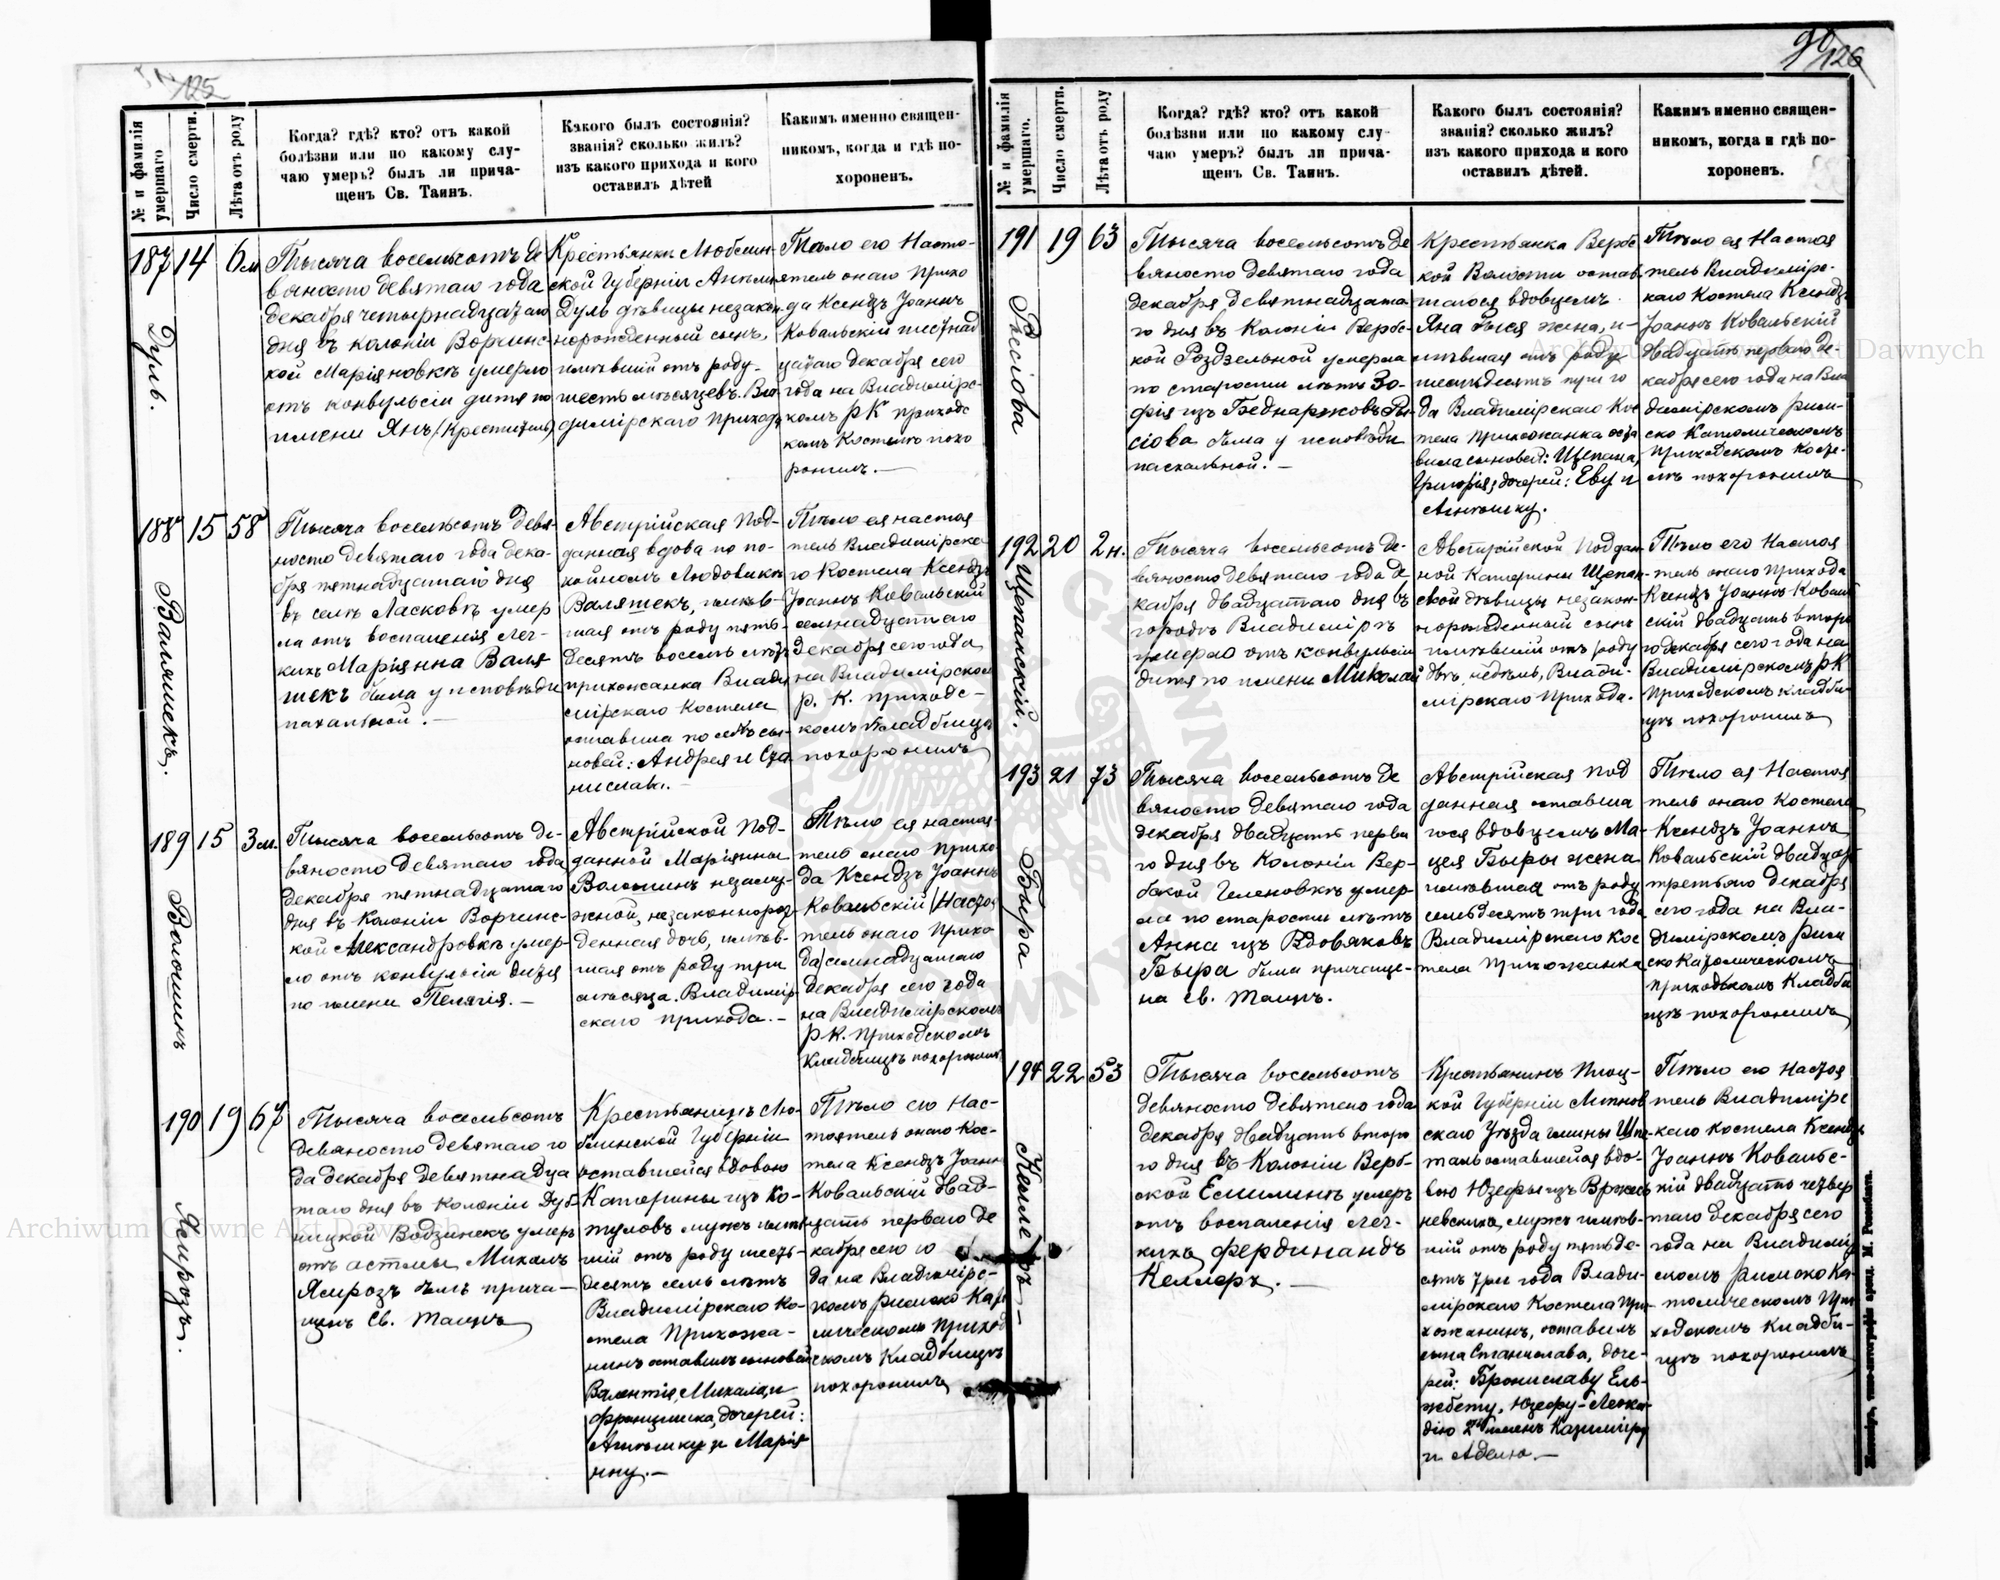 125
№ и фамилія умершаго
Число смерти.
Лѣта отъ роду
Когда? гдѣ? кто? отъ какой
болѣзни или по какому слу-
чаю умеръ? былъ ли прича-
щенъ Св. Таинъ.
Какого былъ состоянія?
званія? сколько жилъ?
изъ какого прихода и кого
оставилъ дѣтей
Какимъ именно священ-
никомъ, когда и гдѣ по-
хороненъ.
187 14 6 м
Дуль.
Тысяча восемьсотъ де
вяносто девятаго года
декабря четырнадцатаго
дня въ колоніи Ворчинс
кой Маріяновкѣ умерло
отъ конвульсіи дитя по
имени Янъ (Креститель)
Крестьянки Люблин-
ской Губерніи
Дуль дѣвицы незакон
норожденный сынъ,
имѣвшій отъ роду
шесть мѣсяцевъ. Вла
димірскаго Прихода
Тѣло его Насто-
ятель онаго прихо
да Ксендзъ Іоаннъ
Ковальскій шестнад
цатаго декабря сего
года на Владимірс-
комъ РК приходс
комъ Костелѣ похо
ронилъ.—
188 15 58
Валяшекъ.
Тысяча восемьсотъ девя-
носто девятаго года дека-
бря пятнадцатаго дня
въ селѣ Ласковѣ умер
ла отъ воспаленія лег-
кихъ Маріянна Валя
шекъ была у исповѣди
пахальной.—
Австрійская под-
данная вдова по по-
койномъ Людовикѣ
Валяшекъ, имѣв-
шая отъ роду пять-
десятъ восемь лѣтъ
прихожанка Влади
мірскаго Костела
оставила по себѣ сы-
новей: Андрея и Ста
нислава.—
Тѣло ея настоя
тель Владимірска
го Костела Ксендзъ
Іоаннъ Ковальскій
семнадцатаго
декабря сего года
на Владимірскомъ
Р. К. приходс-
комъ кладбищѣ
похоронилъ
189 15 3 м.
Волошинъ
Тысяча восемьсотъ де-
вяносто девятаго года
декабря пятнадцатаго
дня въ Колоніи Ворчинс-
кой Александровкѣ умер-
ло отъ конвульсіи дитя
по имени Пелягія.—
Австрійской под-
данной Маріянны
Волошинъ незаму-
жной, незаконнорож
денная дочь, имѣв-
шая отъ роду три
мѣсяца. Владимір-
скаго прихода.—
Тѣло ея настоя-
тель онаго прихо-
да Ксендзъ Іоаннъ
Ковальскій (Настоя
тель онаго Прихо
да) семнадцатаго
декабря сего года
на Владимірскомъ
Р-К. Приходскомъ
Кладбищѣ похоронилъ
190 19 67
Ямрозъ.
Тысяча восемьсотъ
девяносто девятаго го
да декабря девятнадца
таго дня въ Колоніи Дуб
ницкой Водзинекъ умеръ
отъ астмы Михалъ
Ямрозъ былъ прича-
щенъ Св. Таинъ
Крестьянинъ Лю-
блинской Губерніи
оставшейся вдовою
Катерины изъ Ко-
туловъ мужъ имѣв
шій отъ роду шесть-
десятъ семь лѣтъ
Владимірскаго Ко-
стела Прихожа-
нинъ оставилъ сыновей
Валентія, Михала и
Францишка, дочерей:
Антошку и Марія
нну.—
Тѣло его Нас-
тоятель онаго Кос-
тела Ксендзъ Іоаннъ
Ковальскій двад-
цать перваго де
кабря сего го
да на Владимірс-
комъ Римско Като
лическомъ Приход
скомъ Кладбищѣ
похоронилъ
90
126
№ и фамилія умершаго.
Число смерти.
Лѣта отъ роду
Когда? гдѣ? кто? отъ какой
болѣзни или по какому слу-
чаю умеръ? былъ ли прича-
щенъ Св. Таинъ.
Какого былъ состоянія?
званія? сколько жилъ?
изъ какого прихода и кого
оставилъ дѣтей.
Какимъ именно священ-
никомъ, когда и гдѣ по-
хороненъ.
191 19 63
Тысяча восемьсотъ де
вяносто девятаго года
декабря девятнадцата
го дня въ Колоніи Вербс-
кой Роздзельной умерла
по старости лѣтъ Зо-
фія изъ Беднаржовъ
сіова была у исповѣди
пасхальной.—
Крестьянка Вербс
кой Волости остав
шагося вдовцемъ
Яна жена, и-
мѣвшая отъ роду
шестьдесятъ три го
да Владимірскаго Кос
тела Прихожанка оста
вила сыновей: Щепана,
Григорія, дочерей: Еву и
Антошку.
Тѣло ея Настоя
тель Владимірс-
каго Костела Ксендзъ
Іоаннъ Ковальскій
двадцать перваго де-
кабря сего года на Вла
димірскомъ Рим-
ско Католическомъ
Приходскомъ Косте-
лѣ похоронилъ
192 20 2 н.
Щепанскій.
Тысяча восемьсотъ де-
вяносто девятаго года де
кабря двадцатаго дня въ
городѣ Владимірѣ
умерло отъ конвульсіи
дитя по имени Миколай
Австрійской поддан
ной Катерины Щепан-
ской дѣвицы незакон-
норожденный сынъ
имѣвшій отъ роду
двѣ недѣли, Влади-
мірскаго Прихода.
Тѣло его Настоя
тель онаго Прихода
Ксендзъ Іоаннъ Коваль
скій двадцать второ
го декабря сего года на
Владимірскомъ РК
Приходскомъ кладби-
щѣ похоронилъ
193 21 73
Быра
Тысяча восемьсотъ де
вяносто девятаго года
декабря двадцать перва
го дня въ Колоніи Вер-
бской Геленовкѣ умер-
ла по старости лѣтъ
Анна изъ Вдовяковъ
Быра была причаще-
на Св. Таинъ.
Австрійская под
данная оставша
гося вдовцемъ Ма-
цея Быры жена
имѣвшая отъ роду
семьдесятъ три года
Владимірскаго Кос
тела Прихожанка
Тѣло ея Настоя
тель онаго Костела
Ксендзъ Іоаннъ
Ковальскій двадцать
третьяго декабря
сего года на Вла-
димірскомъ Рим
ско Католическомъ
Приходскомъ Кладби
щѣ похоронилъ
194 22 53
Келлеръ—
Тысяча восемьсотъ
девяносто девятаго года
декабря двадцать второ
го дня въ Колоніи Верб-
ской Есмилинъ умеръ
отъ воспаленія лег-
кихъ Фердинандъ
Келлеръ.—
Крестьянинъ Плоц-
кой Губерніи Липнов
скаго Уѣзда гмины
оставшейся вдо-
вою Юзефы изъ
мужъ имѣв-
шій отъ роду пятьде-
сятъ три года Влади-
мірскаго Костела При-
хожанинъ, оставилъ
сына Станислава, доче-
рей: Брониславу Ель-
жбету, Юзефу-Леока-
дію 2хъ именъ Казиміру
и Аделю.—
Тѣло его Настоя
тель Владимірс
каго Костела Ксендзъ
Іоаннъ Ковальс-
кій двадцать четвер
таго декабря сего
года на Владимір
скомъ Римско Ка-
толическомъ При
ходскомъ Кладби-
щѣ похоронилъ
Archiwum Główne Akt Dawnych
Archiwum Główne Akt Dawnych